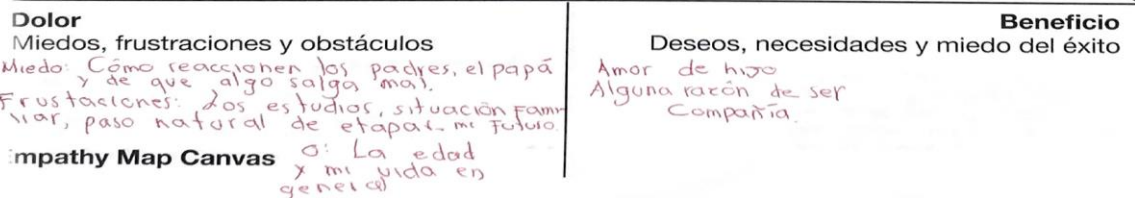 Dolor
Miedos, frustraciones y obstáculos
Miedo: Cómo reaccionen los padres, el papá
y de que algo salga mal.
Frustaciones: Los estudios, situación Fami
liar, paso natural de etapas mi Futuro.
O: La edad
y mi vida en
general
Beneficio
Deseos, necesidades y miedo del éxito
Amor de hijo
Alguna razón de ser
Compañía.
mpathy Map Canvas